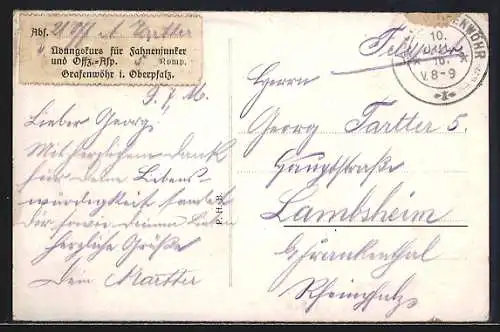 Abf.
Übungskurs für Fahnenjunker
und Offz.-Asp. 5 Komp.
Grafenwöhr i. Oberpfalz.
9. 7. 16.
Lieber Georg!
Mit herzlichem Dank
für deine Liebens-
würdigkeit sendet
dir sowie deinen Lieben
herzliche Grüße
Dein
P. H. B.
10.
16.
V. 8-9
Feldpost
Herrn
Georg Tartter 5.
Hauptstraße
Lambsheim
b/ Frankenthal
Rheinpfalz